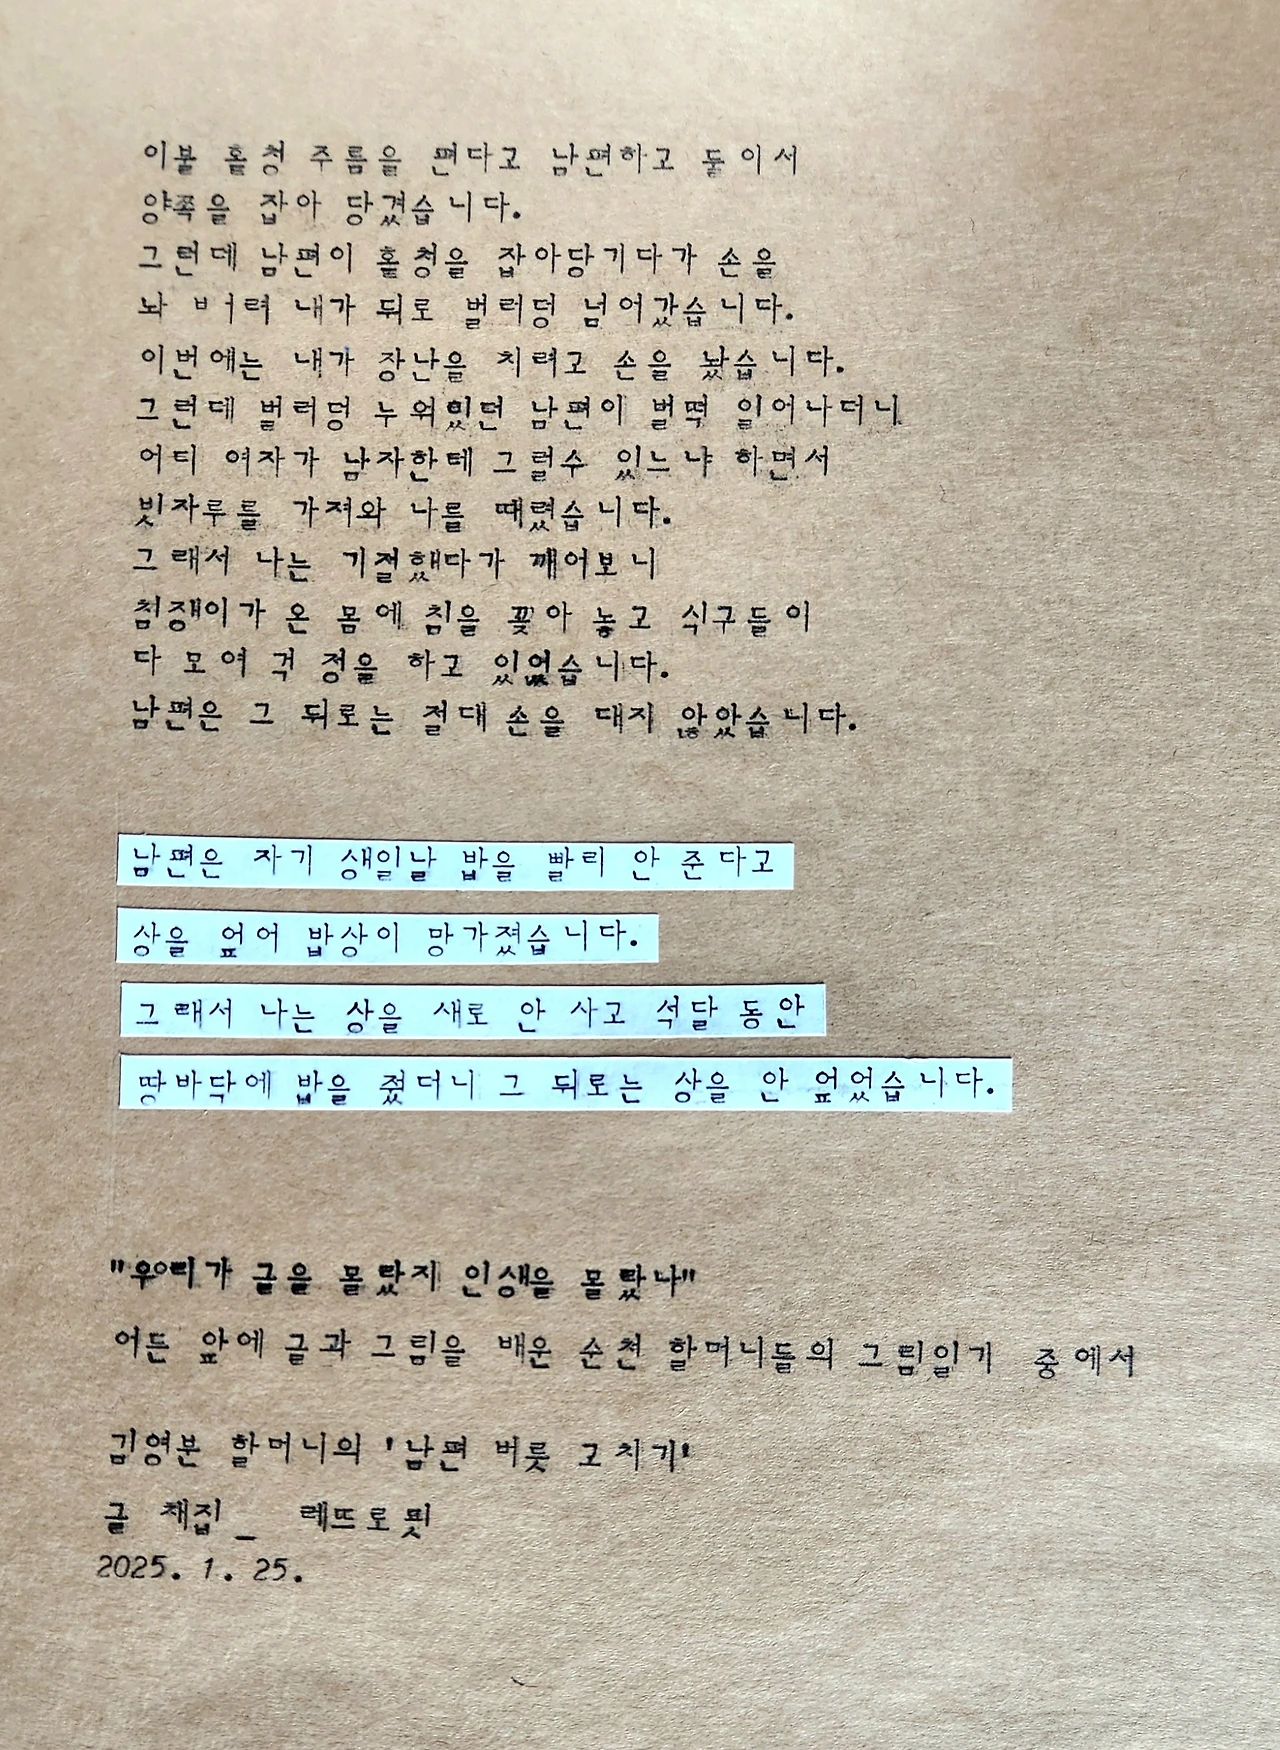 이불 홑청 주름을 편다고 남편하고 둘이서
양쪽을 잡아 당겼습니다.
그런데 남편이 홑청을 잡아당기다가 손을
놔 버려 내가 뒤로 벌러덩 넘어갔습니다.
이번에는 내가 장난을 치려고 손을 놨습니다.
그런데 벌러덩 누워있던 남편이 벌떡 일어나더니
어디 여자가 남자한테 그럴수 있느냐 하면서
빗자루를 가져와 나를 때렸습니다.
그래서 나는 기절했다가 깨어보니
침쟁이가 온 몸에 침을 꽂아 놓고 식구들이
다 모여 걱정을 하고 있었습니다.
남편은 그 뒤로는 절대 손을 대지 않았습니다.
남편은 자기 생일날 밥을 빨리 안 준다고
상을 엎어 밥상이 망가졌습니다.
그래서 나는 상을 새로 안 사고 석달 동안
땅바닥에 밥을 줬더니 그 뒤로는 상을 안 엎었습니다.
"우리가 글을 몰랐지 인생을 몰랐나"
여든 앞에 글과 그림을 배운 순천 할머니들의 그림일기 중에서
김영분 할머니의 '남편 버릇 고치기'
글 채집_ 레뜨로핏
2025. 1. 25.